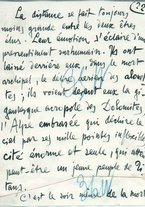 22
La distance se fait toujours
moins grande entre les deux êtres
élus. Leur émotion s'éclaire d'un
pressentiment surhumain. Ils ont
laissé derrière eux dans le mort
archipel, le désert des îles alou-
tes; ils voient devant eux la gi-
gantesque acropole des Dolomites,
l'Alpe embrasée qui déchire le
ciel par ses mille pointes,
cité énorme et seule, qui
peut être un jeune peuple de Ti-
tans.
"C'est le soir même de la mort